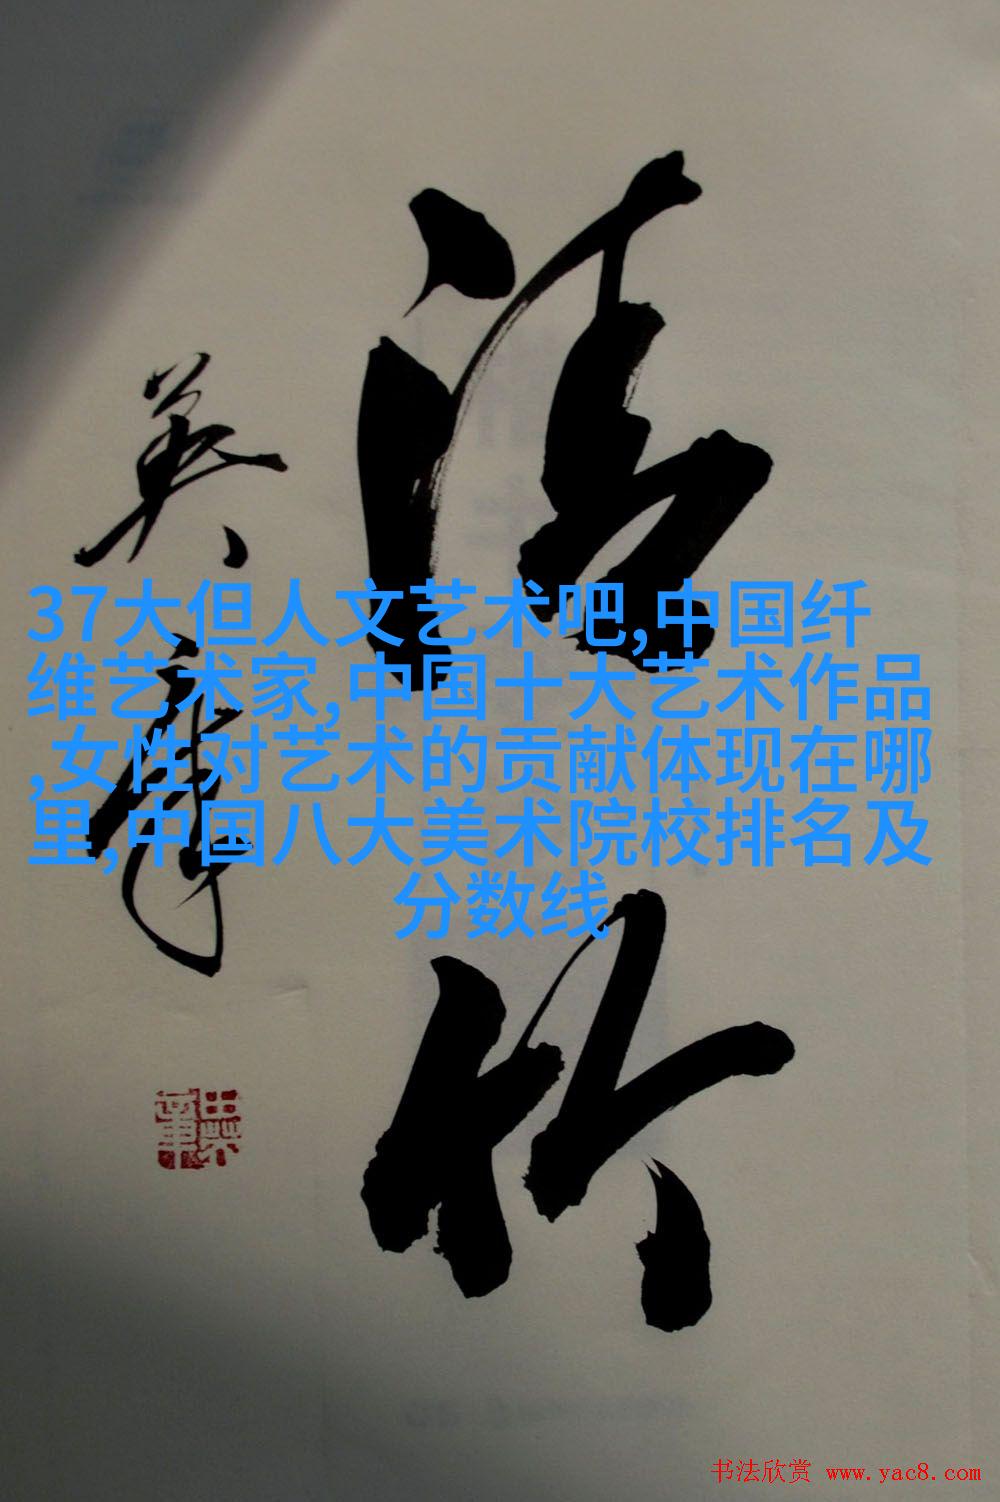 竹
英
37大但人文艺术吧,中国纤
维艺术家,中国十大艺术作品
,女性对艺术的贡献体现在哪
里,中国八大美术院校排名及
分数线
书法欣赏 www.yac8.com